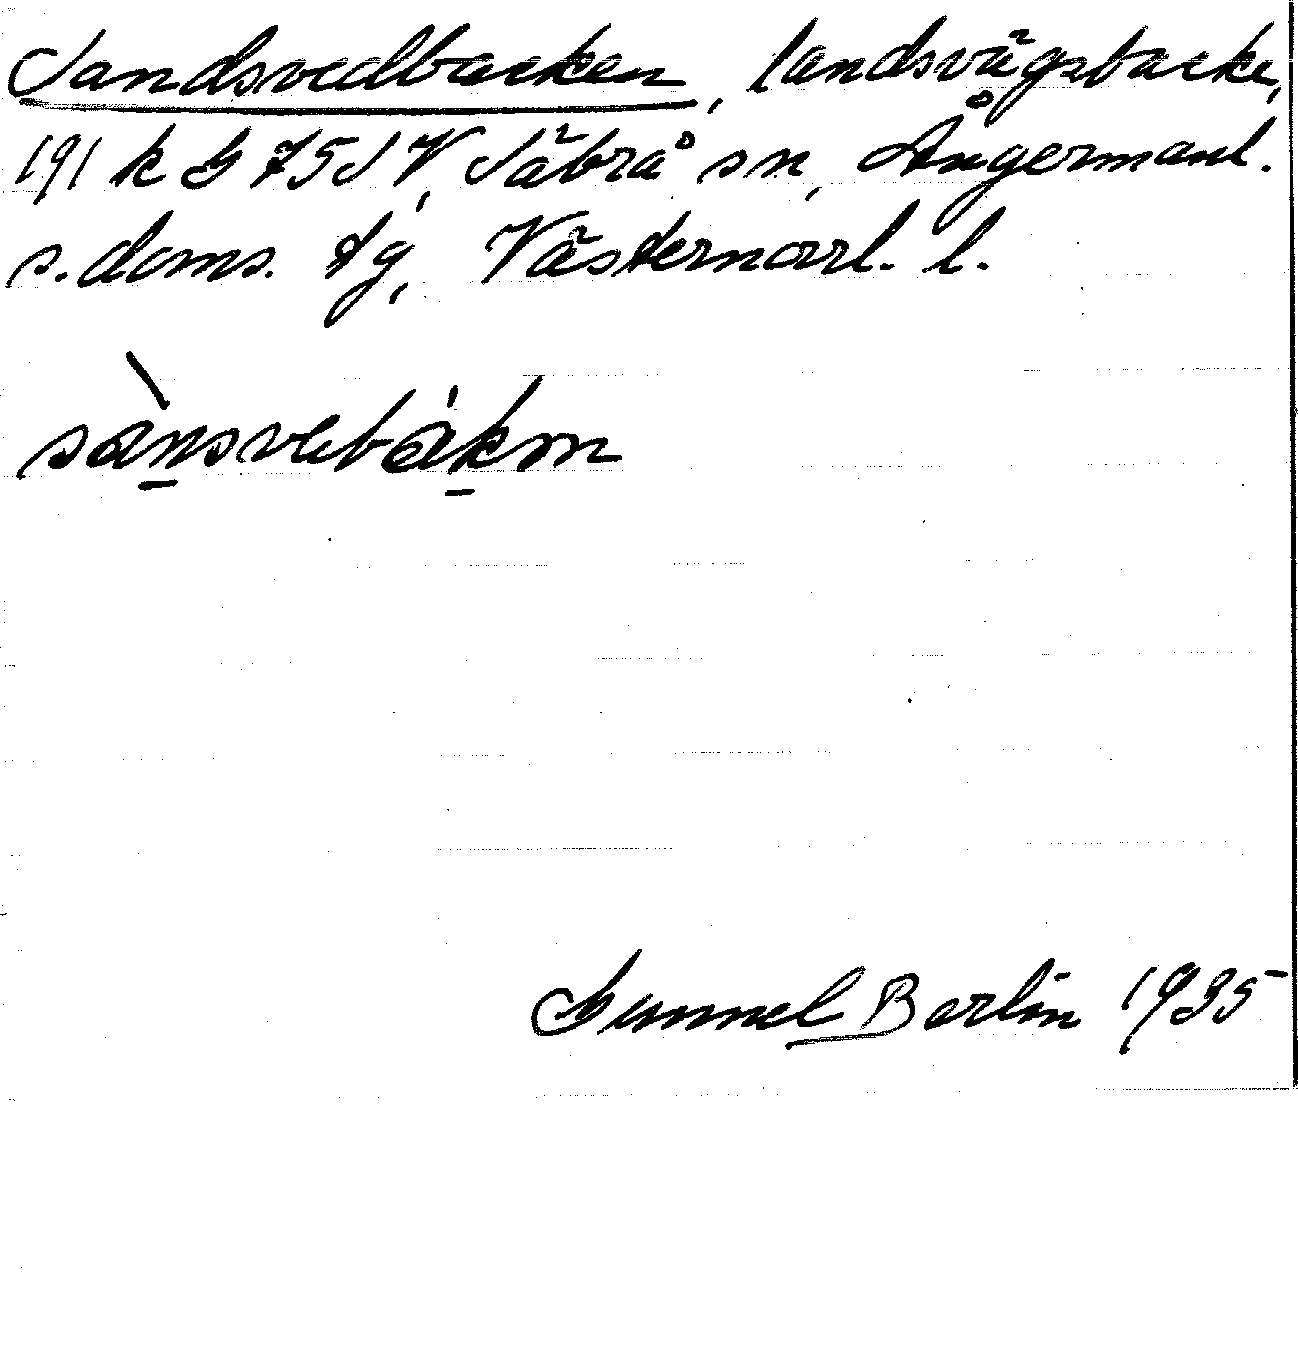 Sandsvedbacken, landsvägsbacke,
191 k G 75 S V, Säbrå sn, Ångermanl.
s. doms. tg, Västernorrl. l.
sànsvebákən
Gunnel Berlin 1935